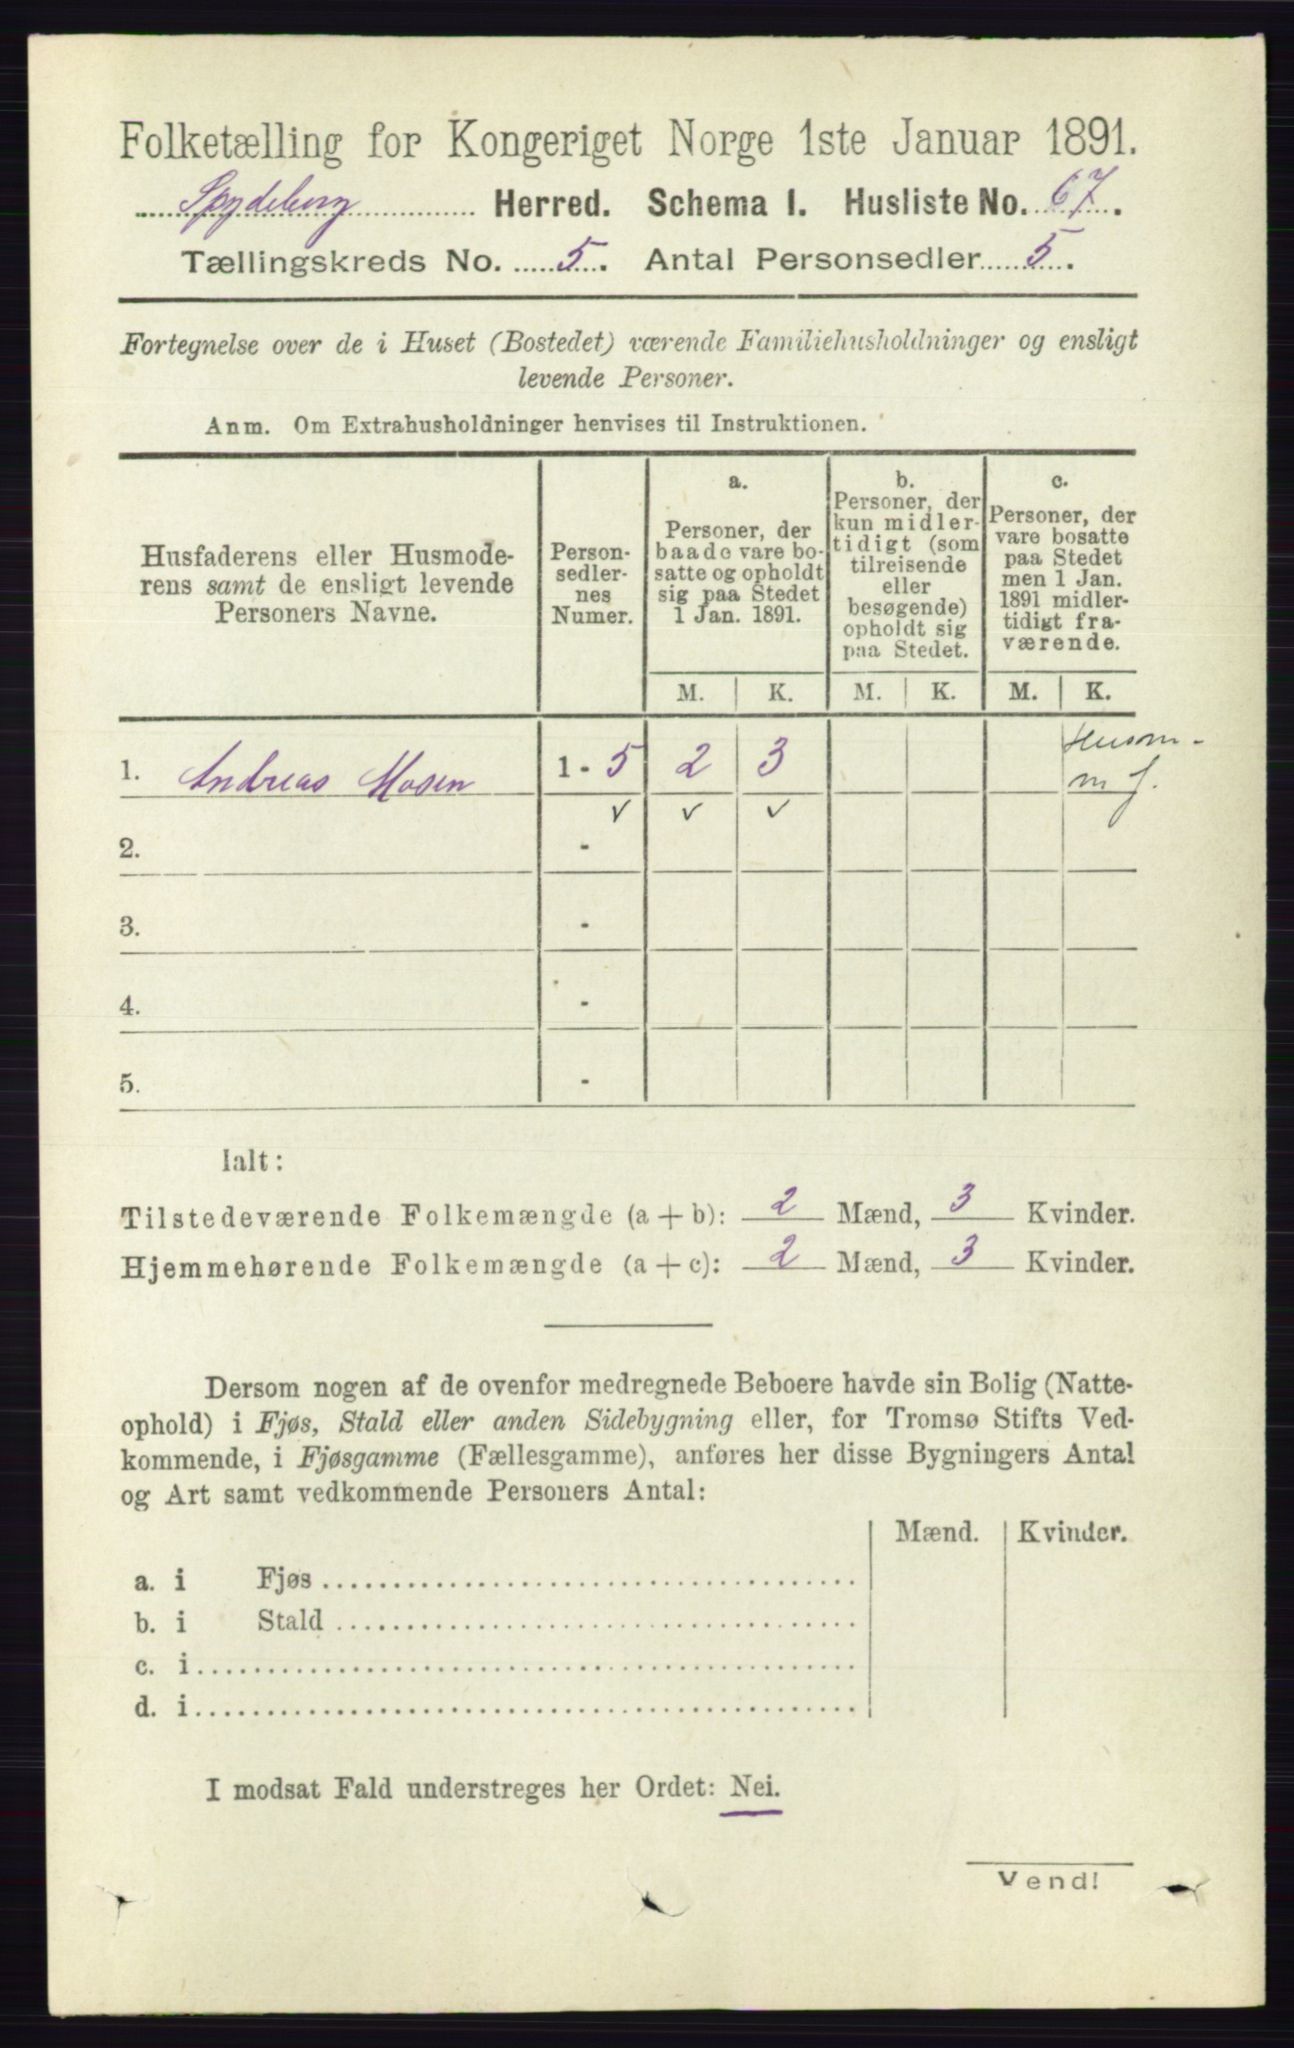 Folketælling for Kongeriget Norge 1ste Januar 1891.
Spydeberg Herred. Schema I. Husliste No. 67.
Tællingskreds No. 5. Antal Personsedler 5.
Fortegnelse over de i Huset (Bostedet) værende Familiehusholdninger og ensligt
levende Personer.
Anm. Om Extrahusholdninger henvises til Instruktionen.
Husfaderens eller Husmode-
rens samt de ensligt levende
Personers Navne.
Person-
sedler-
nes
Numer.
a.
Personer, der
baade vare bo-
satte og opholdt
sig paa Stedet
1 Jan. 1891.
b.
Personer, der
kun midler-
tidigt (som
tilreisende
eller
besøgende)
opholdt sig
paa Stedet.
c.
Personer, der
vare bosatte
paa Stedet
men 1 Jan.
1891 midler-
tidigt fra-
værende.
M. K. M. K. M. K.
1. Andreas Mosen 1 - 5 2 3 Husm-
m J.
✓ ✓ ✓
2. -
3. -
4. -
5. -
Ialt:
Tilstedeværende Folkemængde (a + b): 2 Mænd, 3 Kvinder.
Hjemmehørende Folkemængde (a + c): 2 Mænd, 3 Kvinder.
Dersom nogen af de ovenfor medregnede Beboere havde sin Bolig (Natte-
ophold) i Fjøs, Stald eller anden Sidebygning eller, for Tromsø Stifts Ved-
kommende, i Fjøsgamme (Fællesgamme), anføres her disse Bygningers Antal
og Art samt vedkommende Personers Antal:
Mænd. Kvinder.
a. i Fjøs
b. i Stald
c. i
d. i
I modsat Fald understreges her Ordet: Nei.
Vend!